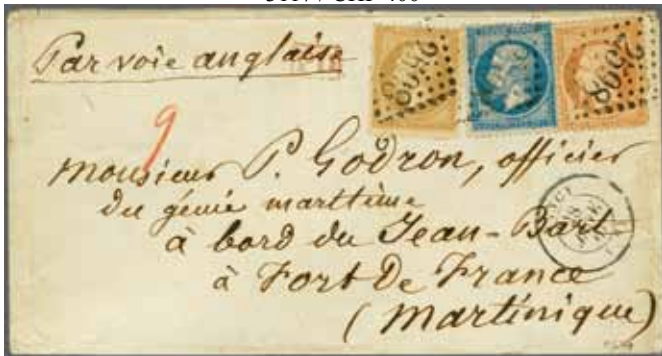 Par voie anglaise
2598
2598
9
Monsieur P. Godron, officier
du génie maritime
à bord du Jean-Bart
à Fort De France
(Martinique)